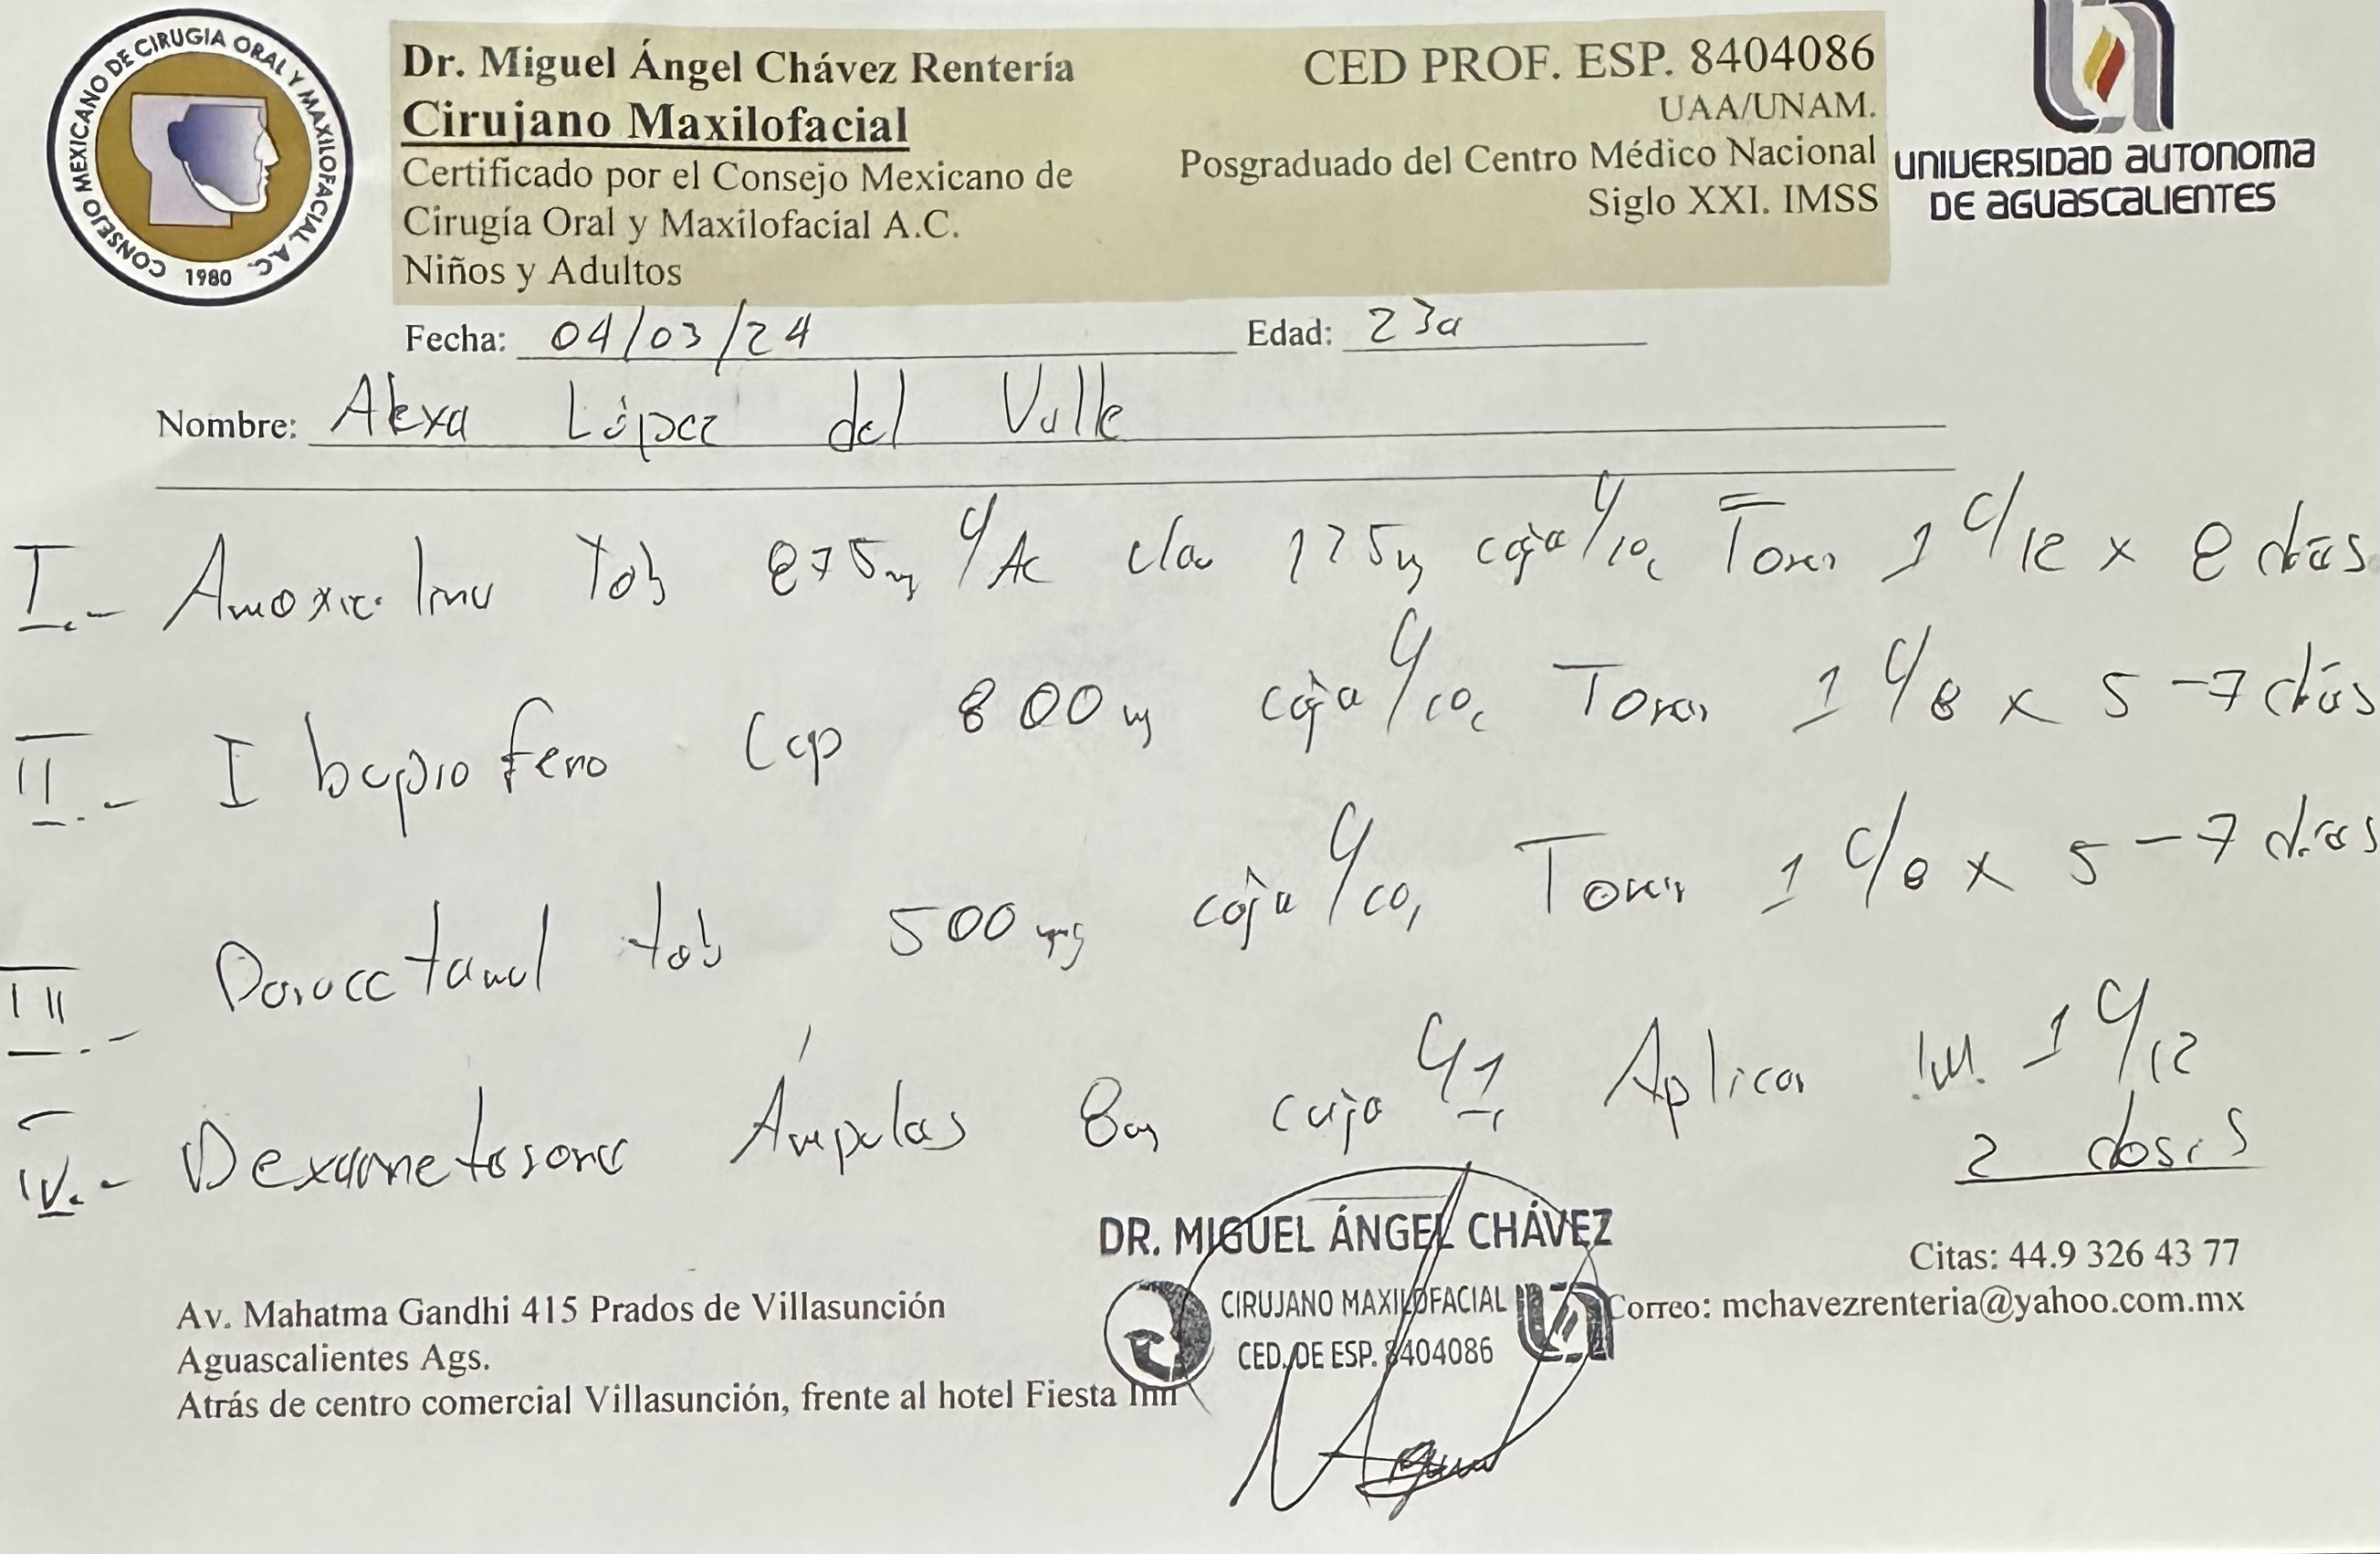 CONSEJO MEXICANO DE CIRUGIA ORAL Y MAXILOFACIAL, A.C.
1980
Dr. Miguel Ángel Chávez Rentería
Cirujano Maxilofacial
Certificado por el Consejo Mexicano de
Cirugía Oral y Maxilofacial A.C.
Niños y Adultos
CED PROF. ESP. 8404086
UAA/UNAM.
Posgraduado del Centro Médico Nacional
Siglo XXI. IMSS
UNIVERSIDAD AUTONOMA
DE AGUASCALIENTES
Fecha: 04/03/24 Edad: 23a
Nombre: Alexa López del Valle
I.- Amoxicilina Tab 875mg c/Ac clav 125mg caja c/10, Tomar 1 c/12 x 8 días
II.- Ibuprofeno Cap 800mg caja c/10, Tomar 1 c/8 x 5-7 días
III.- Paracetamol tab 500mg caja c/10, Tomar 1 c/8 x 5-7 días
IV.- Dexametasona Ámpulas 8mg caja c/1, Aplicar I.M. 1 c/12
2 dosis
DR. MIGUEL ÁNGEL CHÁVEZ
CIRUJANO MAXILOFACIAL
CED. DE ESP. 8404086
Av. Mahatma Gandhi 415 Prados de Villasunción
Aguascalientes Ags.
Atrás de centro comercial Villasunción, frente al hotel Fiesta Inn
Citas: 44.9 326 43 77
Correo: mchavezrenteria@yahoo.com.mx